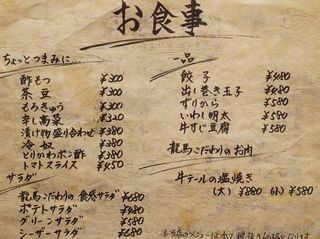 お食事
ちょっとつまみに…
酢もつ ¥300
茶豆 ¥300
もろきゅう ¥300
辛し高菜 ¥320
漬け物盛り合わせ ¥380
冷奴 ¥380
とりかわポン酢 ¥380
トマトスライス ¥450
サラダ
龍馬こだわりの食感サラダ ¥680
ポテトサラダ ¥480
グリーンサラダ ¥580
シーザーサラダ ¥680
一品
餃子 ¥480
出し巻き玉子 ¥480
ずりから ¥580
いわし明太 ¥580
牛すじ豆腐 ¥580
龍馬こだわりのお肉
牛テールの塩焼き
(大) ¥880 (小) ¥580
※当店のメニューは全て税抜き価格となります